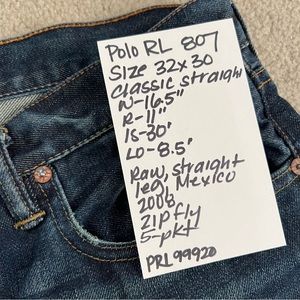 Polo RL 807
Size 32x30
Classic straight
W-16.5"
R-11"
Is-30"
LO-8.5"
Raw, straight
leg, Mexico
2008
zip fly
5-pkt
PRL99920